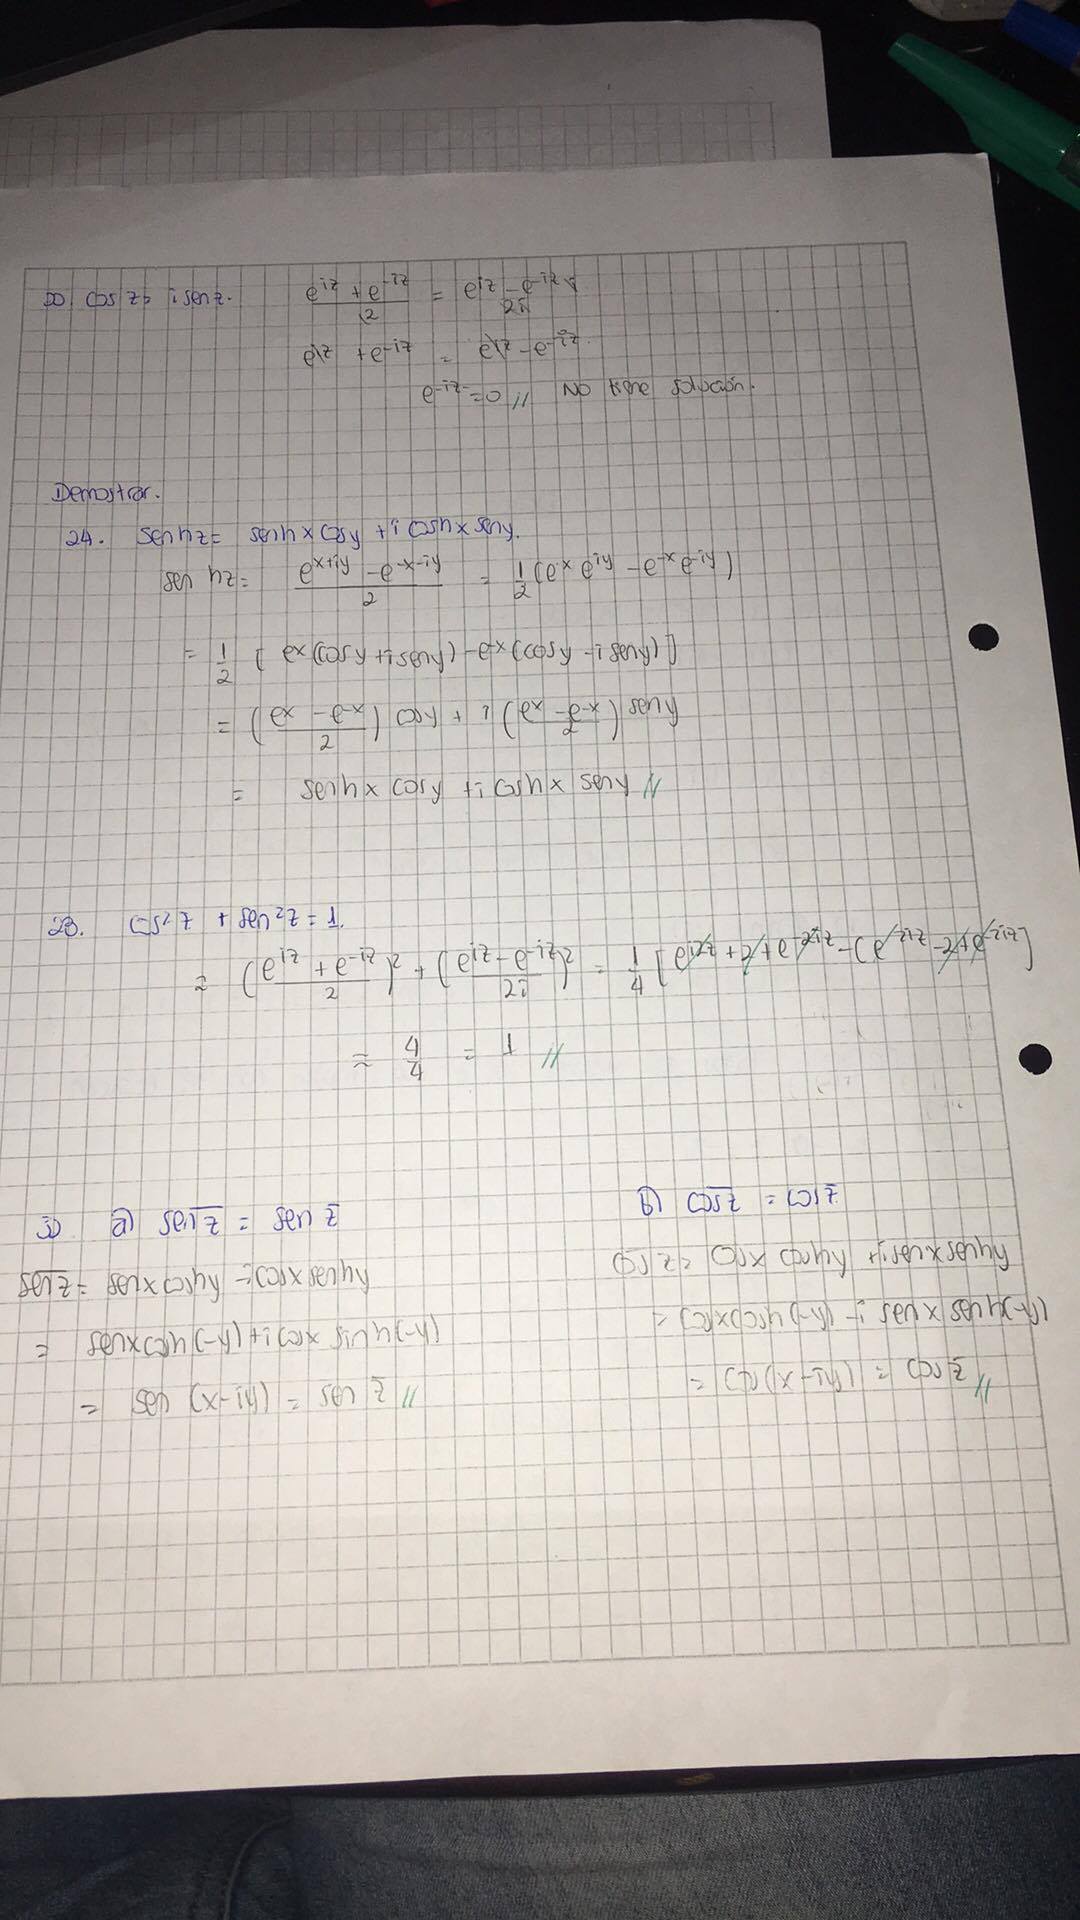 20) cos z = i sen z. (e^{iz} + e^{-iz})/2 = (e^{iz} - e^{-iz})/2i i
e^{iz} + e^{-iz} = e^{iz} - e^{-iz}.
e^{-iz} = 0 // No tiene solución.
Demostrar.
24. senh z = senh x cos y + i cosh x sen y.
sen hz = (e^{x+iy} - e^{-x-iy})/2 = 1/2 (e^x e^{iy} - e^{-x} e^{-iy})
= 1/2 [e^x (cos y + i sen y) - e^{-x} (cos y - i sen y)]
= ((e^x - e^{-x})/2) cos y + i ((e^x - e^{-x})/2) sen y
= senh x cos y + i cosh x sen y //
28. cos²z + sen²z = 1.
= ((e^{iz} + e^{-iz})/2)² + ((e^{iz} - e^{-iz})/2i)² = 1/4 [e^{i2z} + 2 + e^{-2iz} - (e^{2iz} - 2 + e^{-2iz})]
= 4/4 = 1 //
a) \overline{sen z} = sen \bar{z} b) \overline{cos z} = cos \bar{z}
\overline{sen z} = sen x cosh y - i cos x senh y \overline{cos z} = cos x cosh y + i sen x senh y
= sen x cosh(-y) + i cos x sinh(-y) = cos x cosh(-y) - i sen x senh(-y)
= sen (x-iy) = sen \bar{z} // = cos(x-iy) = cos \bar{z} //